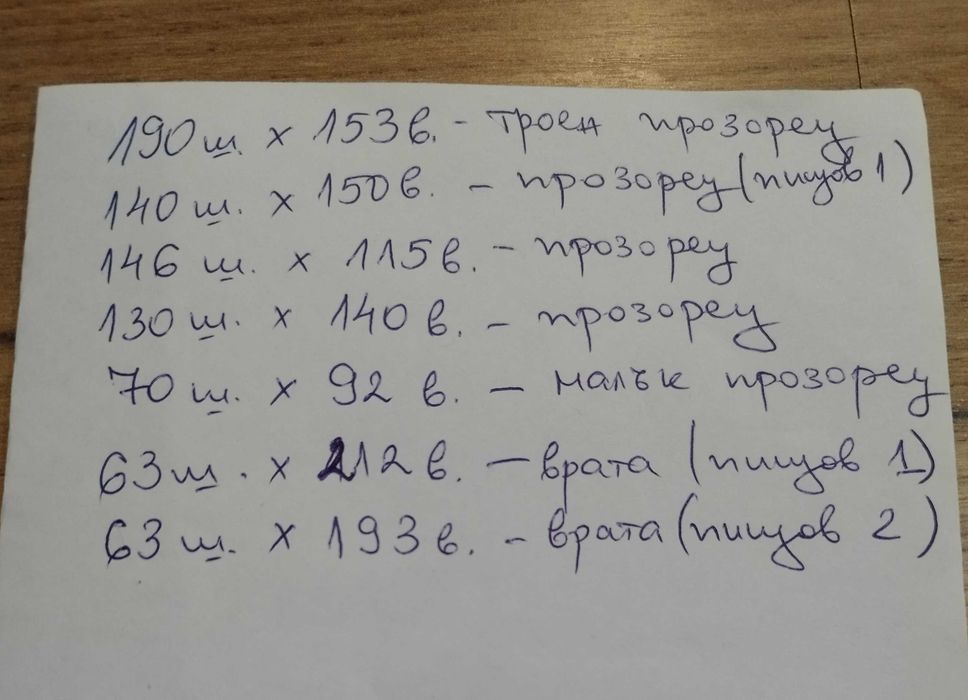 190 ш. x 153 в. - троен прозорец
140 ш. x 150 в. - прозорец (пищов 1)
146 ш. x 115 в. - прозорец
130 ш. x 140 в. - прозорец
70 ш. x 92 в. - малък прозорец
63 ш. x 212 в. - врата (пищов 1)
63 ш. x 193 в. - врата (пищов 2)